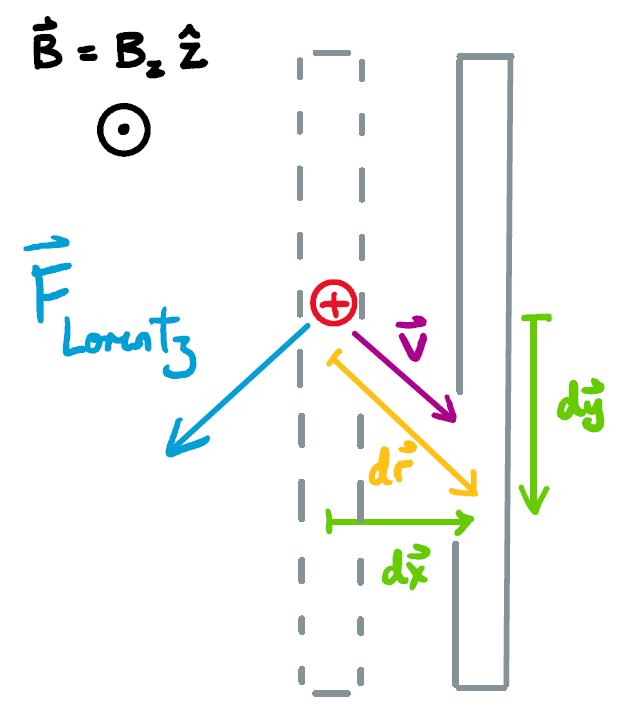 B⃗ = B_z ẑ
F⃗_Lorentz
+
v⃗
dr⃗
dy⃗
dx⃗